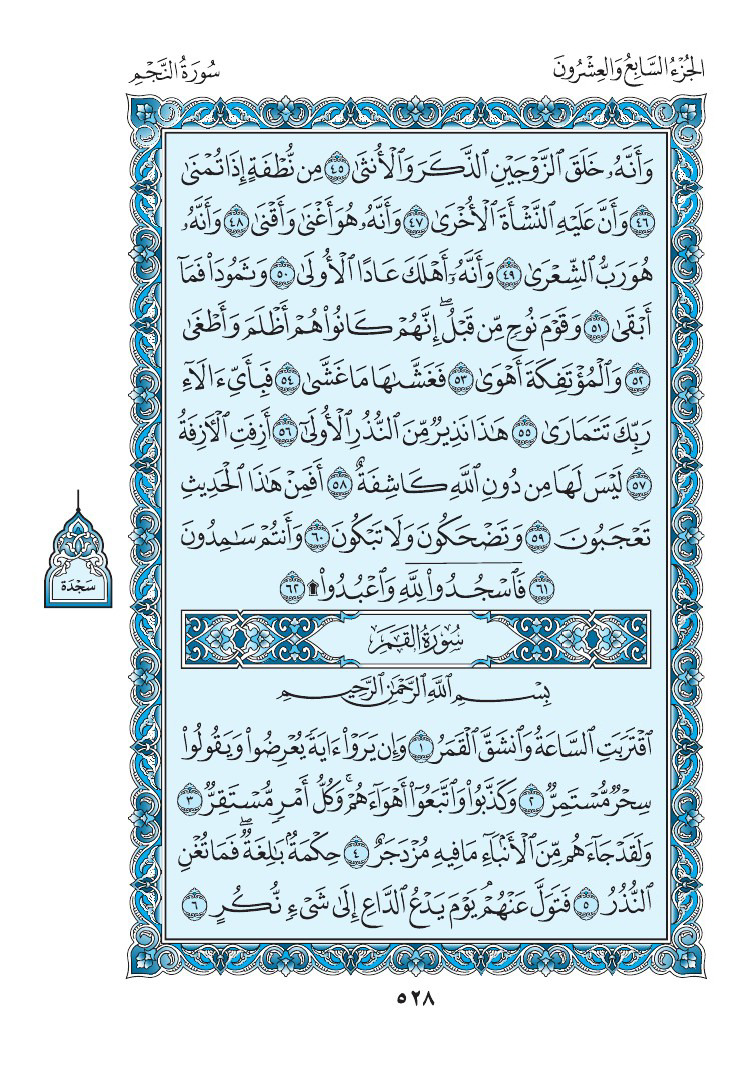 الجُزْءُ السَّابِعُ وَالعِشْرُونَ
سُورَةُ النَّجْمِ
وَأَنَّهُۥ خَلَقَ ٱلزَّوۡجَيۡنِ ٱلذَّكَرَ وَٱلۡأُنثَىٰ ٤٥ مِن نُّطۡفَةٍ إِذَا تُمۡنَىٰ
٤٦ وَأَنَّ عَلَيۡهِ ٱلنَّشۡأَةَ ٱلۡأُخۡرَىٰ ٤٧ وَأَنَّهُۥ هُوَ أَغۡنَىٰ وَأَقۡنَىٰ ٤٨ وَأَنَّهُۥ
هُوَ رَبُّ ٱلشِّعۡرَىٰ ٤٩ وَأَنَّهُۥٓ أَهۡلَكَ عَادًا ٱلۡأُولَىٰ ٥٠ وَثَمُودَاْ فَمَآ
أَبۡقَىٰ ٥١ وَقَوۡمَ نُوحٖ مِّن قَبۡلُۖ إِنَّهُمۡ كَانُواْ هُمۡ أَظۡلَمَ وَأَطۡغَىٰ
٥٢ وَٱلۡمُؤۡتَفِكَةَ أَهۡوَىٰ ٥٣ فَغَشَّىٰهَا مَا غَشَّىٰ ٥٤ فَبِأَيِّ ءَالَآءِ
رَبِّكَ تَتَمَارَىٰ ٥٥ هَٰذَا نَذِيرٞ مِّنَ ٱلنُّذُرِ ٱلۡأُولَىٰٓ ٥٦ أَزِفَتِ ٱلۡأٓزِفَةُ
٥٧ لَيۡسَ لَهَا مِن دُونِ ٱللَّهِ كَاشِفَةٌ ٥٨ أَفَمِنۡ هَٰذَا ٱلۡحَدِيثِ
تَعۡجَبُونَ ٥٩ وَتَضۡحَكُونَ وَلَا تَبۡكُونَ ٦٠ وَأَنتُمۡ سَٰمِدُونَ
٦١ فَٱسۡجُدُواْۤ لِلَّهِۤ وَٱعۡبُدُواْ ۩ ٦٢
سَجْدَة
سُورَةُ القَمَرِ
بِسۡمِ ٱللَّهِ ٱلرَّحۡمَٰنِ ٱلرَّحِيمِ
ٱقۡتَرَبَتِ ٱلسَّاعَةُ وَٱنشَقَّ ٱلۡقَمَرُ ١ وَإِن يَرَوۡاْ ءَايَةٗ يُعۡرِضُواْ وَيَقُولُواْ
سِحۡرٞ مُّسۡتَمِرّٞ ٢ وَكَذَّبُواْ وَٱتَّبَعُوٓاْ أَهۡوَآءَهُمۡۚ وَكُلُّ أَمۡرٖ مُّسۡتَقِرّٞ ٣
وَلَقَدۡ جَآءَهُم مِّنَ ٱلۡأَنۢبَآءِ مَا فِيهِ مُزۡدَجَرٌ ٤ حِكۡمَةُۢ بَٰلِغَةٞۖ فَمَا تُغۡنِ
ٱلنُّذُرُ ٥ فَتَوَلَّ عَنۡهُمۡۘ يَوۡمَ يَدۡعُ ٱلدَّاعِ إِلَىٰ شَيۡءٖ نُّكُرٍ ٦
٥٢٨